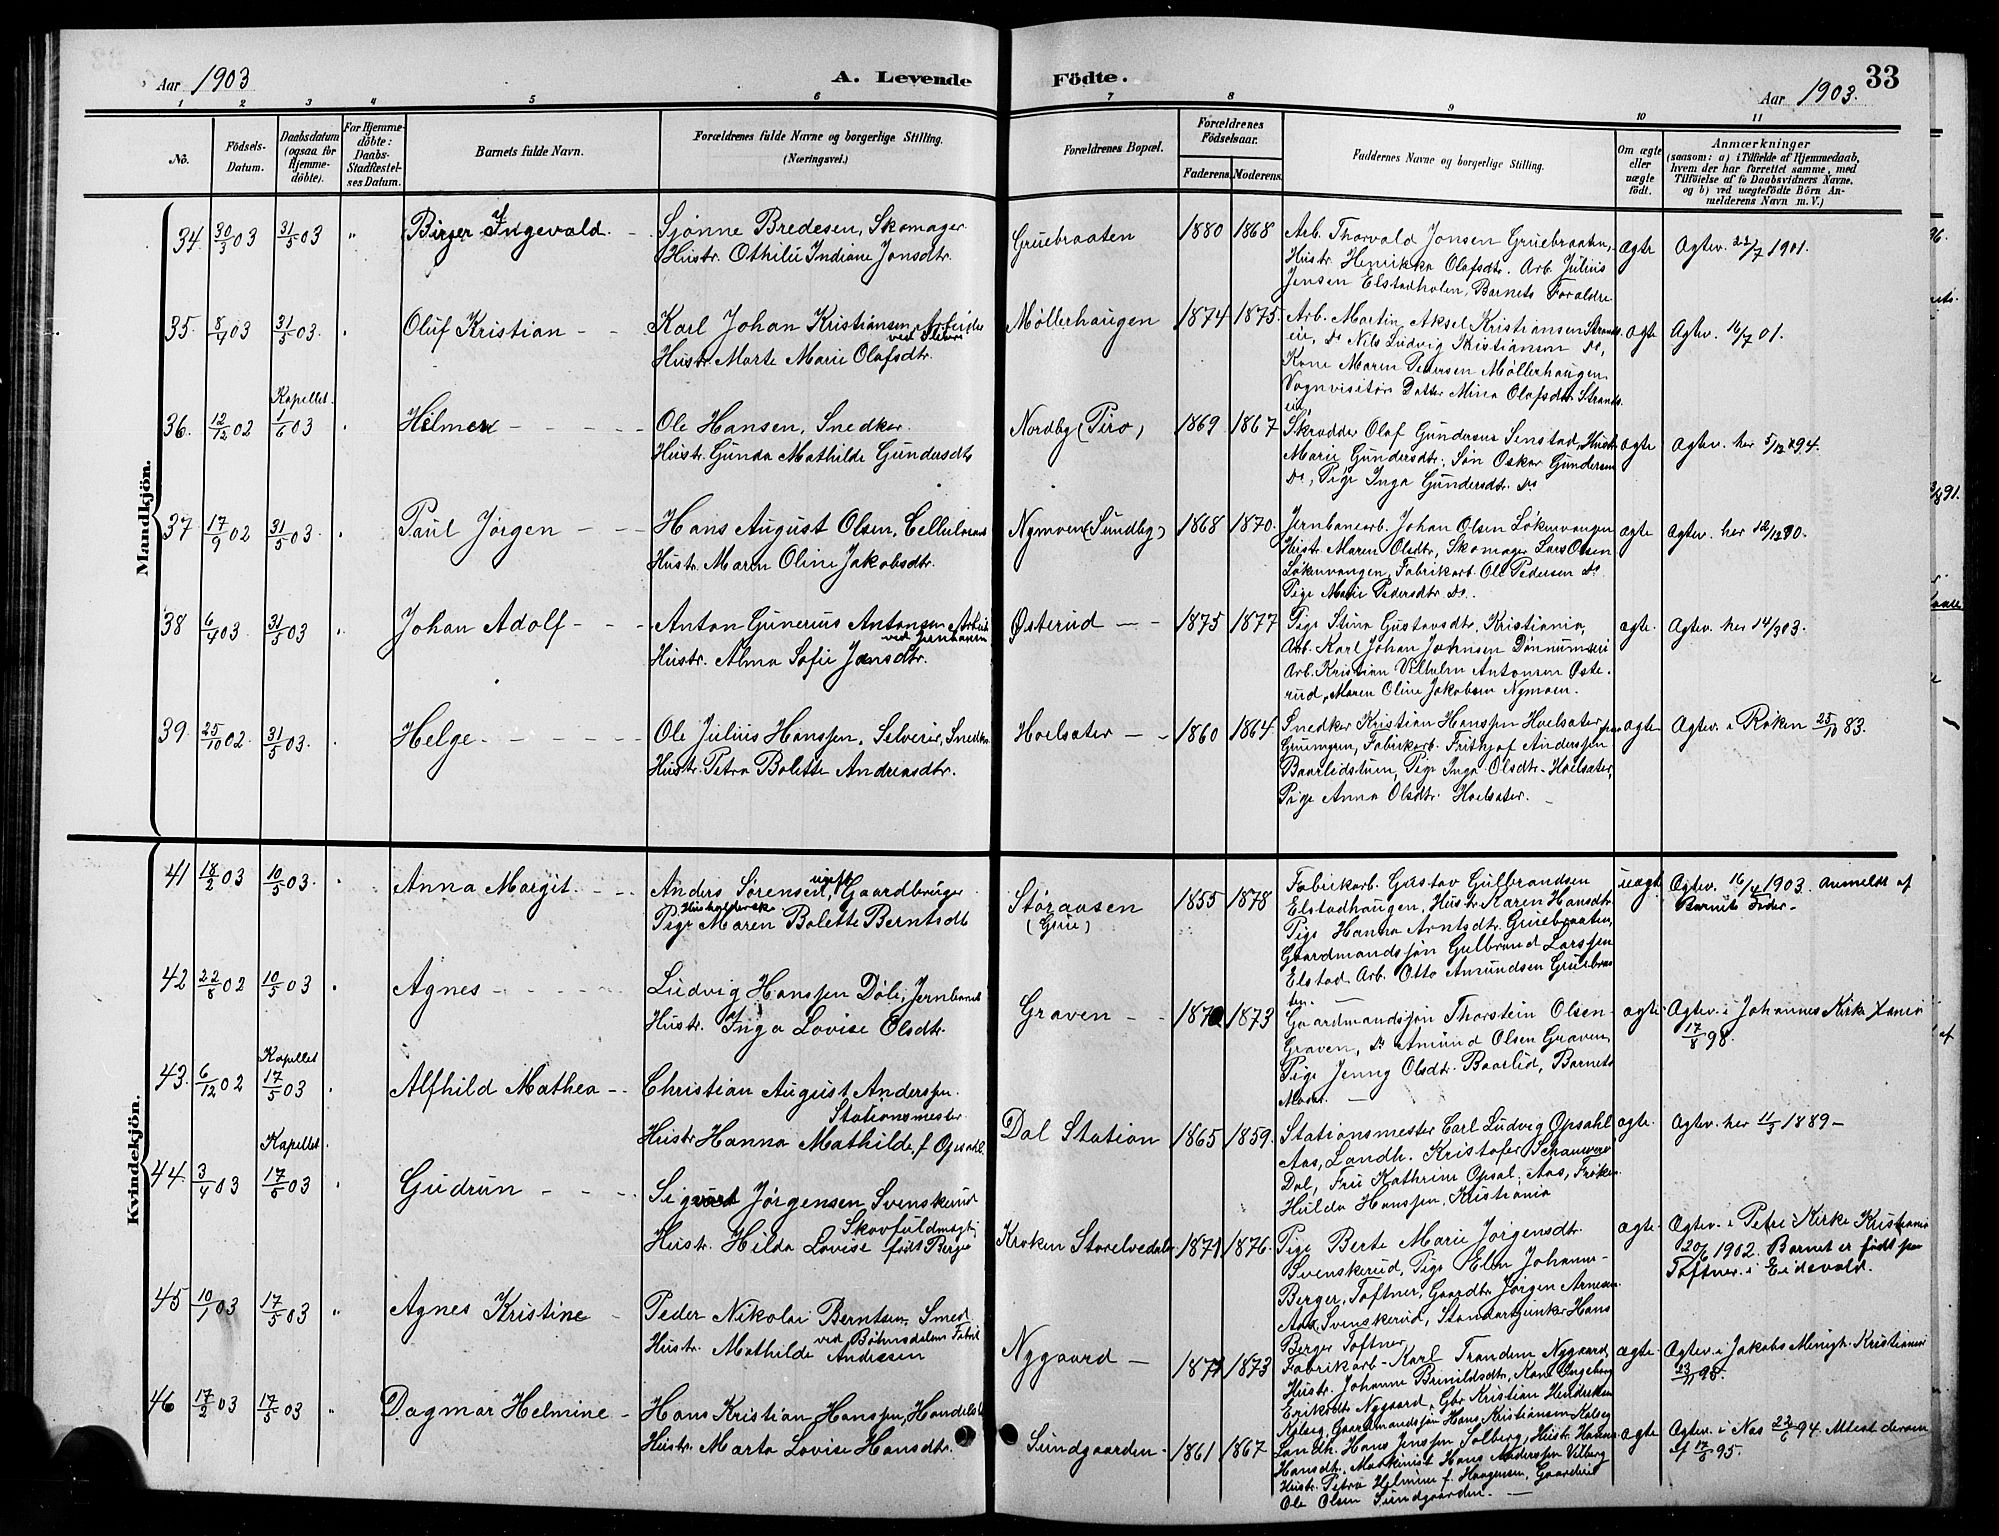 Aar 1903
A. Levende Födte.
33
Aar 1903.
1 2 3 4 5 6 7 8 9 10 11
No.
Födsels-Datum.
Daabsdatum (ogsaa for Hjemme-döbte).
For Hjemme-döbte: Daabs-Stadfæstel-ses Datum.
Barnets fulde Navn.
Forældrenes fulde Navne og borgerlige Stilling.
(Næringsvei.)
Forældrenes Bopæl.
Forældrenes Födselsaar.
Faderens. Moderens.
Faddernes Navne og borgerlige Stilling.
Om ægte eller uægte født.
Anmærkninger
(saasom: a) i Tilfælde af Hjemmedaab, hvem der har forrettet samme, med Tilföielse af to Daabsvidners Navne, og b) ved uægtefödte Börn An-melderens Navn m. V.)
Mandkjön.
34. 30/3 03 31/5 03 " Birger Ingevald. - Sjønne Bredesen, Skomager
Hustr. Othilie Indiane Jonsdtr.
Gruebraaten 1880 1868
Arb. Thorvald Jonsen Gruebraaten,
Hustr. Henrikka Olafsdtr. Arb. Julius
Jensen Elstadholen, Barnets Forældre
ægte Ægtev. 1901.
35. 8/4 03 31/5 03. " Oluf Kristian - - Karl Johan Kristiansen, Arbeider
Hustr. Marte Marie Olafsdtr.
Møllerhaugen 1874 1875.
Arb. Martin Aksel Kristiansen Strands-
eie, Do Nils Ludvig Kristiansen Do,
Kone Maren Pedersen Møllerhaugen
Vognvisitør Datter Mina Olafsdtr. Strands-
eie
ægte Ægtev. 16/7 01.
36. 12/12 02 Kapellet 1/6 03 " Hilmer - - - - Ole Hansen, Snedker
Hustr. Gunda Mathilde Gundersdtr
Nordby (Piro) 1869 1867
Skrædder Olaf Gundersen Senstad, Hustr.
Marie Gundersdtr. Søn Oskar Gundersen
Do, Pige Inga Gundersdtr. Do
ægte Ægtev. her 5/12 94.
37 17/9 02 31/5 03. " Paul Jørgen - - - Hans August Olsen,
Hustr. Maren Oline Jakobsdtr.
Nymoen (Sundby) 1868 1870.
Jernbanearb. Johan Olsen Løkenvangen
Hustr. Maren Olsdtr, Skomager Lars Olsen
Løkenvangen, Fabrikarb. Ole Pedersen Do
Pige Marie Pedersdtr. Do.
ægte Ægtev. her 12/12 90.
38 6/4 03. 31/5 03 " Johan Adolf - - - Anton Gunerius Antonsen Arbeid
ved Jernbanen
Hustr. Alma Sofie Jonsdtr.
Østerud - - 1875 1877
Pige Stina Gustavsdtr, Kristiania,
Arb. Karl Johan Johnsen Dønnumseie
Arb. Kristian Vilhelm Antonsen Øste-
rud, Maren Oline Jakobsen Nymoen.
ægte. Ægtev. her 14/3 03.
39. 25/10 02. 31/5 03. " Helge - - - - - Ole Julius Hanssen. Selveier, Snedker
Hustr. Petra Bolette Andreasdtr.
Hoelsæter - - 1860 1864.
Snedker Kristian Hanssen Hoelsæter
Fabrikarb. Frithjof Anderssen
Baarlidstuen, Pige Inga Olsdtr. Hoelsæter,
Pige Anna Olsdtr. Hoelsæter. -
ægte Ægtev. i Røken 25/10 83.
Kvindekjön.
41 18/2 03 10/5 03. " Anna Margit - - Anders Sørensen, ugift Gaardbruger
Husholderske
Pige Maren Bolette Berntsdtr
Støraasen (Grue) 1855 1878
Fabrikarb. Gustav Gulbrandsen
Elstadhaugen, Hustr. Karen Hansdtr.
Pige Hanna Arntsdtr. Gruebraaten,
Gaardmandssøn Gulbrand Larssen
Elstad Arb. Otto Amundsen Gruebraa-
ten.
uægte Ægtev. 16/4 1903. Anmeldt af
Barnets Fader -
42 22/8 02 10/5 03 " Agnes - - - - - Ludvig Hanssen Døli, Jernbanebt
Hustr. Inga Lovise Olsdtr.
Graven - - 1870 1873
Gaardmandssøn Thorstein Olsen
Graven, Do Amund Olsen Graven
Pige Jenny Olsdtr. Baarlid, Barnets
Moder. -
ægte Ægtev. i Johannes Kirke Xania
17/8 98.
43. 6/12 02 Kapellet 17/5 03 " Alfhild Mathea - - Christian August Anderssen.
Stationsmester
Hustr. Hanna Mathilde f. Opsahl.
Dal Station 1865 1859.
Stationsmester Carl Ludvig Opsahl
Aas, Landh. Kristofer
Dal, Fru Kathrine Opsal, Aas, Frøken
Hulda Hanssen, Kristiania
ægte. Ægtev. her 11/3 1889 -
44. 3/4 03 Kapellet 17/5 03 " Gudrun - - - Sigvart Jørgensen Svenskerud
Skovfuldmægtig
Hustr. Hilda Lovise født Berger
Kroken Storelvedalen 1871 1876.
Pige Berte Marie Jørgensdtr.
Svenskerud, Pige Elen Johanne
Berger, Toftner, Gaardbr. Jørgen Arnesen
Svenskerud, Standartjunker Hans
Berger Toftner
ægte. Ægtev. i Petri Kirke Kristiania
20/6 1902. Barnet er født paa
Toftner i Eidsvold.
45 10/1 03 17/5 03 " Agnes Kristine - Peder Nikolai Berntsen, Smed
ved Bøhnsdalens Fabrik
Hustr. Mathilde Andresen
Nygaard - 1871 1873
Fabrikarb - Karl Trandem Nygaard,
Hustr. Johanne Brynildsdtr, Kone Ingeborg
Eriksdtr Nygaard, Gbr Kristian Hendriksen
Kolseg, Gaardmandssøn Hans Kristiansen Kolseg
ægte. Ægtev. i Jakobs Menigh. Kristiania
23/11 98.
46 17/2 03 17/5 03 " Dagmar Helmine - Hans Kristian Hanssen, Handelsb
Hustr. Marta Lovise Hansdtr.
Sundgaarden - 1861 1867
Landh. Hans Jenssen Solberg, Hustr. Hanna
Hansdtr. Maskinist Hans Anderssen Vilberg
Hustr. Petra Helmine f. Haagensen, Gaardeier
Ole Olsen Sundgaarden. -
ægte Ægtev. i Næs 23/6 94. Attest derom
af 17/8 95.